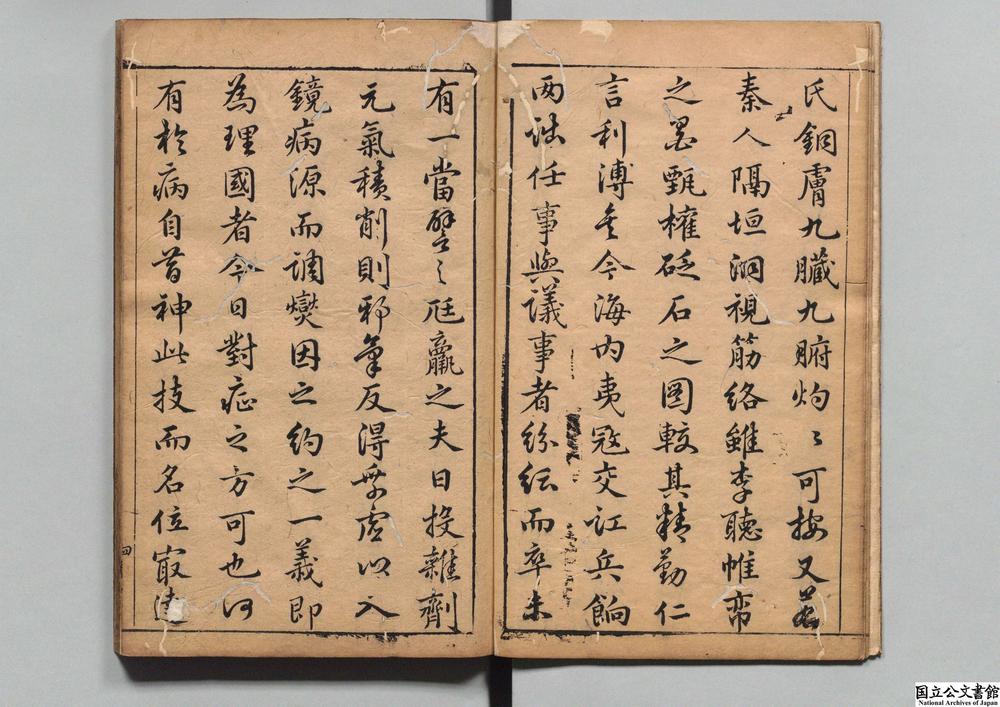 氏銅膚九臟九腑灼〻可按又若
秦人隔垣洞視筋絡雖李聽帷帘
之 甄權砭石之图較其精勤仁
言利溥 今海内夷寇交訌兵餉
两詘任事與議事者纷纭而卒未
有一當譬之尪羸之夫日投雜劑
元氣積削則邪氣反得乗虚以入
鏡病源而調爕因之約之一義即
為理國者今日對症之方可也何
有於病自昔神此技而名位㝡達
四
国立公文書館
National Archives of Japan